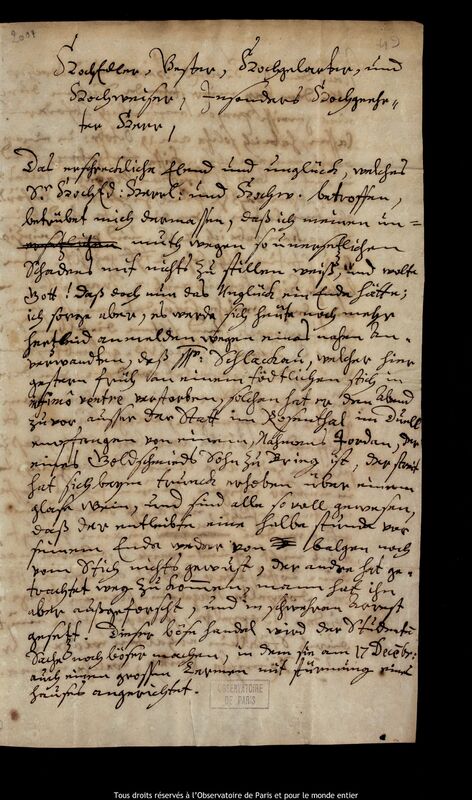 HochEdler, Vester, Hochgelarter, und
Hochweiser, Insonders Hochgeehr-
ter Herr,
Das erschreckliche Elend und unglück, welches
Sr HochEd: Herrl: und Hochw. betroffen,
betrübet mich dermassen, daß ich meinen un=
muth wegen so unersetzlichen
Schadens mit nichts zu stillen weiß, und wolte
Gott! daß doch nun das Unglück ein Ende hätte;
ich sorge aber, es werde sich heute noch mehr
hertzleid anmelden wegen eines nahen An-
verwandten, deß Schlackau, welcher hier
gestern früh an einem tödtlichen stich in
infimo ventre verstorben, solchen hat er den Abend
zuvor, ausser der Statt im Rosenthal im Duell
empfangen von einem, Nahmens Jordan, der
eines Goldschmieds Sohn zu Brieg ist, der streit
hat sich beym trunck erhoben über einem
glase Wein, und sind alle so voll gewesen,
daß der entleibte eine halbe stunde vor
seinem Ende weder von balgen noch
vom Stich nichts gewust, der andre hat ge-
trachtet weg zu kommen, mann hat ihn
aber außgeforscht, und in schwehren Arrest
gesetzt. Dieser böse handel wird der Studenten
Sache noch böser machen, in dem sie am 17 Decembr:
auch einen grossen Lermen mit stürmung eines
Hauses angerichtet.
OBSERVATOIRE
DE PARIS
Tous droits réservés à l'Observatoire de Paris et pour le monde entier